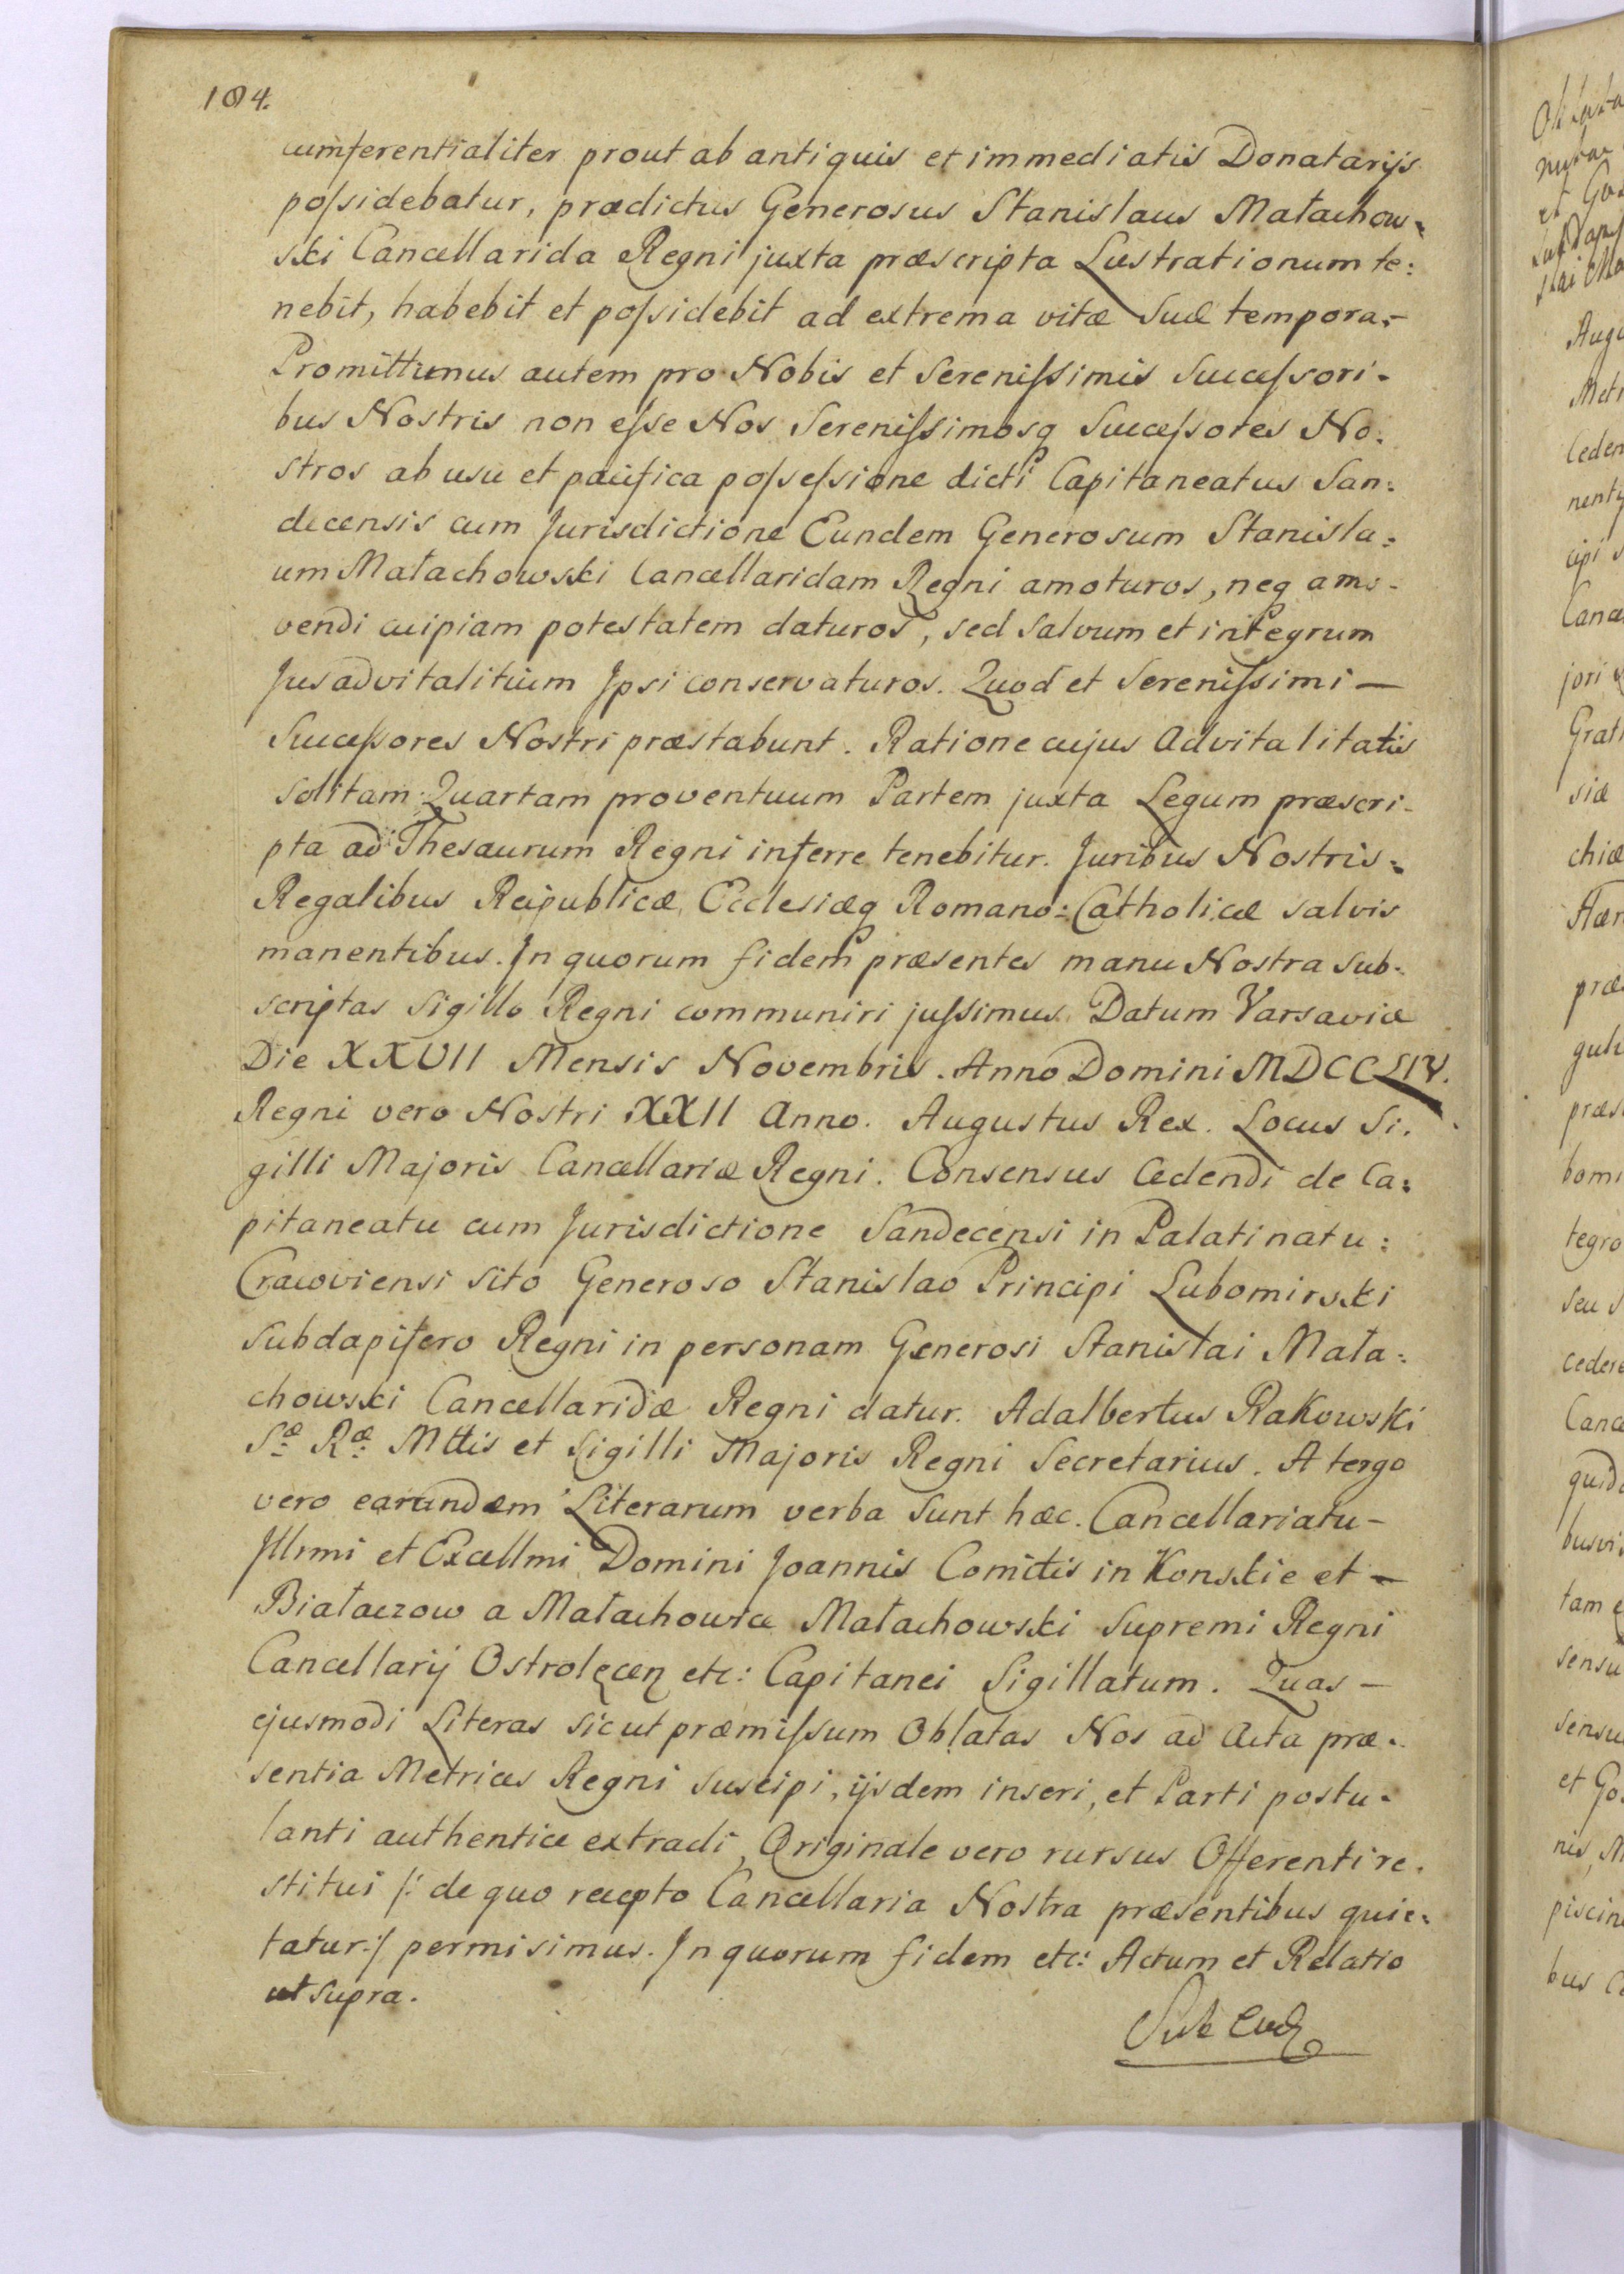 184.
cumferentialiter prout ab antiquis et immediatis Donatarijs
poſsidebatur, prædictus Generosus Stanislaus Małachow=
ski Cancellarida Regni juxta præscripta Lustrationum te:
nebit, habebit et poſsidebit ad extrema vitæ Suæ tempora.-
Promittimus autem pro Nobis et Sereniſsimis Succeſsori-
bus Nostris non eſse Nos Sereniſsimosq Succeſsores No:
stros ab usu et pacifica poſseſsione dicti Capitaneatus San:
decensis cum Jurisdictione Eundem Generosum Stanisla:
um Małachowski Cancellaridam Regni amoturos, neq amo-
vendi cuipiam potestatem daturos, sed salvum et integrum
Jus advitalitium Jpsi conservaturos. Quod et Sereniſsimi —
Succeſsores Nostri præstabunt. Ratione cujus Advitalitatis
solitam Quartam proventuum Partem juxta Legum præscri-
pta ad Thesaurum Regni inferre tenebitur. Juribus Nostris=
Regalibus Reipublicæ, Ecclesiæq Romano=Catholicæ salvis
manentibus. Jn quorum fidem præsentes manu Nostra sub-
scriptas Sigillo Regni communiri juſsimus. Datum Varsaviæ
Die XXVII Mensis Novembris. Anno Domini MDCCLIV.
Regni vero Nostri XXII Anno. Augustus Rex. Locus Si.
gilli Majoris Cancellariæ Regni. Consensus Cedendi de Ca=
pitaneatu cum Jurisdictione Sandecensi in Palatinatu:
Cracoviensi sito Generoso Stanislao Principi Lubomirski
Subdapifero Regni in personam Generosi Stanislai Mała:
chowski Cancellaridæ Regni datur. Adalbertus Rakowski
Sæ Ræ Mttis et Sigilli Majoris Regni Secretarius. A tergo
vero earundem Literarum verba sunt hæc. Cancellariatu-
Jllrmi et Excellmi Domini Joannis Comitis in Konskie et —
Białaczow a Małachowice Małachowski Supremi Regni
Cancellarij Ostrolęcen etc: Capitanei Sigillatum. Quas —
ejusmodi Literas sicut præmiſsum Oblatas Nos ad Acta præ-
sentia Metrices Regni suscipi, ijsdem inseri, et Parti postu-
lanti authentice extradi, Originale vero rursus Offerenti re-
stitui /: de quo recepto Cancellaria Nostra præsentibus quie=
tatur:/ permisimus. Jn quorum fidem etc: Actum et Relatio
ut supra.